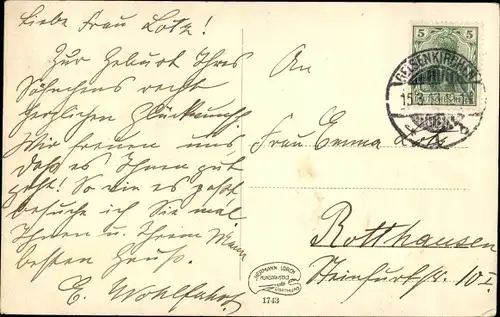 Liebe Frau Lotz!
Zur Geburt Ihres
Söhnchens recht
herzlichen Glückwunsch.
Wir freuen uns
daß es Ihnen gut
geht! So wie es paßt
besuche ich Sie mal
Ihnen u. Ihrem Mann
besten Gruß.
E. Wohlfahrt
An
Frau Emma Lotz
Rotthausen
Steinfurtstr. 10 I
5 5
GELSENKIRCHEN
15.
HERMANN LORCH
KUNSTANSTALT
DORTMUND
1743